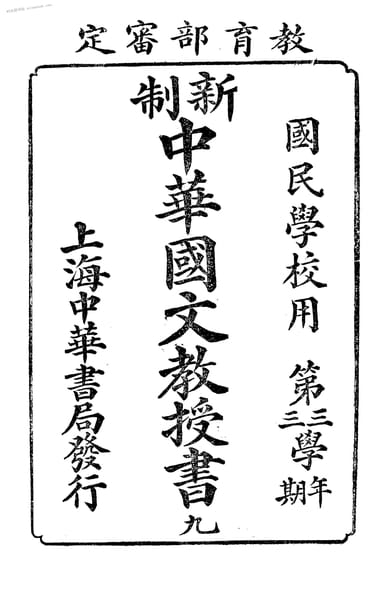 教育部審定
國民學校用 第三學年三學期
新制
中華國文教授書 九
上海中華書局發行